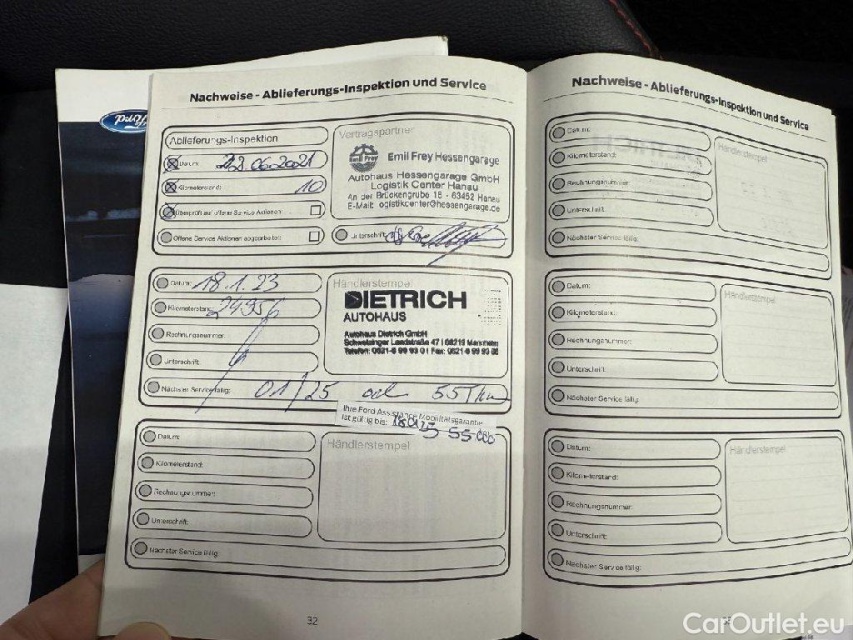 Ford
Nachweise - Ablieferungs-Inspektion und Service
Ablieferungs-Inspektion
Datum: 22.06.2021
Kilometerstand: 10
Überprüft auf offene Service Aktionen:
Offene Service Aktionen abgearbeitet:
Vertragspartner
Emil Frey
Emil Frey Hessengarage
Autohaus Hessengarage GmbH
Logistik Center Hanau
An der Brückengrube 15 - 63452 Hanau
E-Mail: logistikcenter@hessengarage.de
Unterschrift:
Datum: 18.1.23
Kilometerstand: 24956
Rechnungsnummer:
Unterschrift:
Nächster Service fällig: 01/25 od 55Tkm
Händlerstempel
DIETRICH
AUTOHAUS
Autohaus Dietrich GmbH
Schwetzinger Landstraße 47 | 68219 Mannheim
Ihre Ford Assistance Mobilitätsgarantie
ist gültig bis:
Datum:
Kilometerstand:
Rechnungsnummer:
Unterschrift:
Nächster Service fällig:
Händlerstempel
32
Nachweise - Ablieferungs-Inspektion und Service
Datum:
Kilometerstand:
Rechnungsnummer:
Unterschrift:
Nächster Service fällig:
Händlerstempel
Datum:
Kilometerstand:
Rechnungsnummer:
Unterschrift:
Nächster Service fällig:
Händlerstempel
Datum:
Kilometerstand:
Rechnungsnummer:
Unterschrift:
Nächster Service fällig:
Händlerstempel
CarOutlet.eu